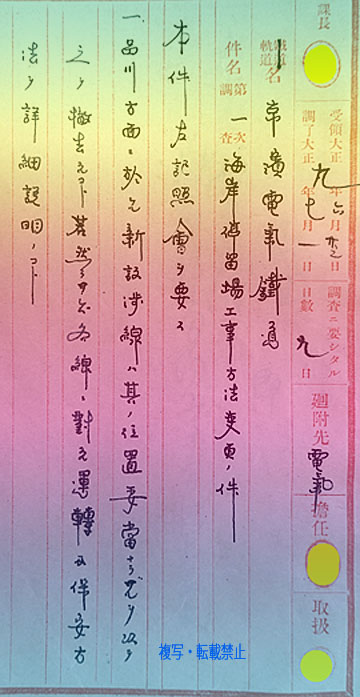 課長
受領大正九年六月廿二日
調了大正 年七月一日
調査ニ要シタル日數 九日
廻附先 電氣
擔任
取扱
鐵道
軌道名 京濱電氣鐵道
件名 海岸停留場工事方法変更ノ件
調第一次査
本件左記照會ヲ要ス
一、品川方面ニ於ル新設渉線ハ其ノ位置妥當ナラザルヲ以テ
之ヲ撤去スルコト若然ラザレバ各線ニ對スル運轉及保安方
法ヲ詳細説明ノコト
複写・転載禁止